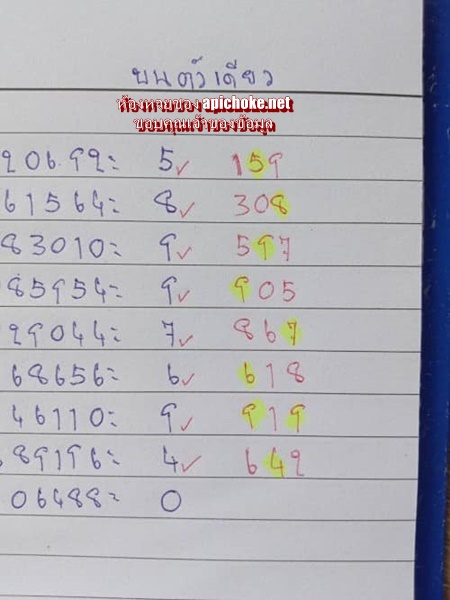 บนตัวเดียว
ห้องหายของ apichoke.net
ขอบคุณเจ้าของข้อมูล
920692= 5✓ 159
61564= 8✓ 308
83010= 9✓ 597
85954= 9✓ 905
29044= 7✓ 867
68656= 6✓ 618
46110= 9✓ 919
689196= 4✓ 642
06488= 0